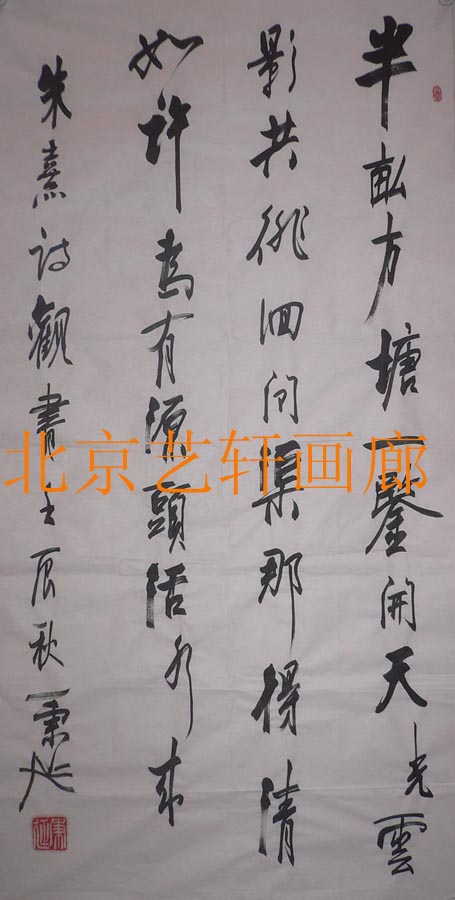 半畝方塘一鑒開天光雲
影共徘徊問渠那得清
如許為有源頭活水來
朱熹詩觀書壬辰秋秉延
北京艺轩画廊